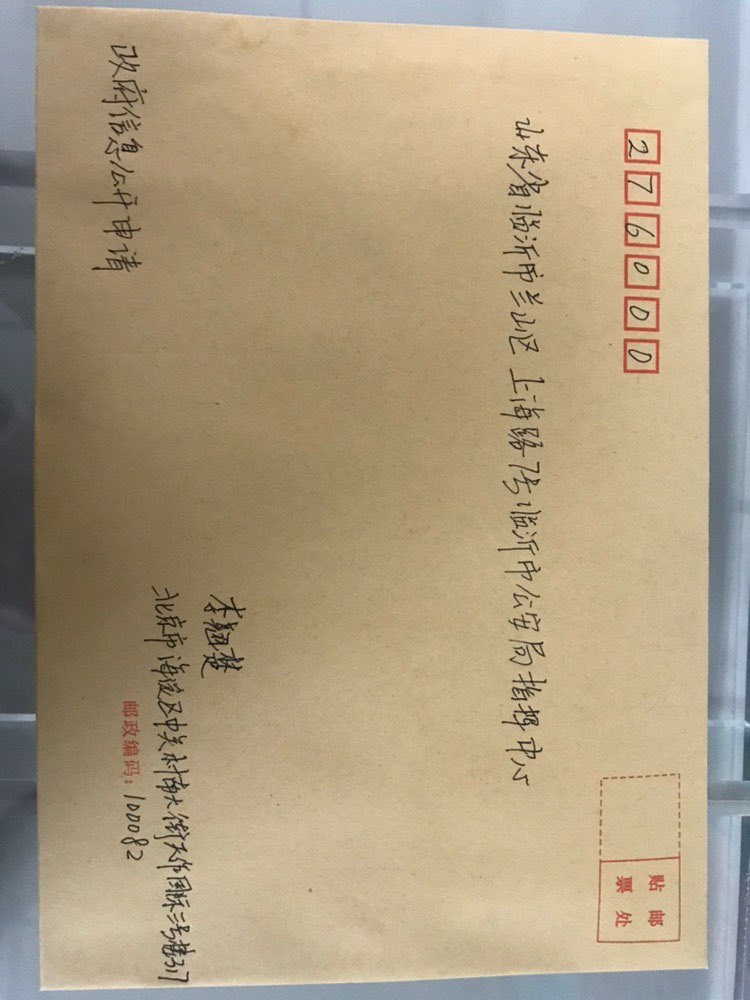 276000
贴邮
票处
山东省临沂市兰山区上海路7号临沂市公安局指挥中心
李翘楚
北京市海淀区中关村南大街天作国际三号楼317
邮政编码：100082
政府信息公开申请